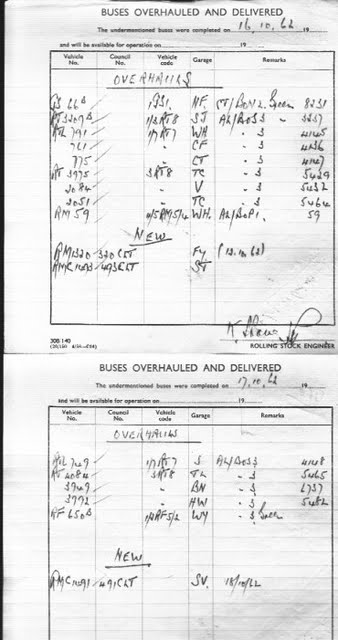 BUSES OVERHAULED AND DELIVERED
The undermentioned buses were completed on 16.10.62 19
and will be available for operation on 19
Vehicle No. Council No. Vehicle code Garage Remarks
OVERHAULS
GS 66 1GS1. NF. 8331
RT 3207 1/3RT8 SJ AL/BO3S - 3337
RTL 791 1/7RT7 WH - 3 4145
761 " CF - 3 4236
775 " CT - 3 4147
RT 3975 3RT8 TC - 3 5429
2084 " V - 3 5432
2051 " TC - 3 5464
RM 59 4/5RM5/4 WH. AL/BOP1. 59
NEW
RM1320 - 320CLT FY (12.10.62)
RMC1493 - 493CLT ST
ROLLING STOCK ENGINEER
BUSES OVERHAULED AND DELIVERED
The undermentioned buses were completed on 17.10.62 19
and will be available for operation on 19
Vehicle No. Council No. Vehicle code Garage Remarks
OVERHAULS
RTL 749 1/7RT7 S AL/BO3S 4148
RT 4084 3RT8 TL - 3 5465
3949 " BN - 3 6737
3992 " HW - 3 5482
RF 650 1/2RF5/2 WY - 3 Green
NEW
RMC1491 - 491CLT SV. 18/10/62